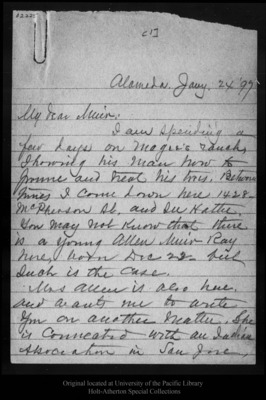 [1]
Alameda, Jany. 24 '97
My dear Muir:
I am spending a
few days on Magee's ranch,
showing his man how to
prune and treat his trees. Between
times I come down here 1428-
McPherson St. and see Hattie.
You may not know that there
is a young Allen Muir Ray
here, born Dec 22- but
such is the case.
Mrs Allen is also here
and wants me to write
you on another matter. She
is connected with an Indian
Association in San Jose,
Original located at University of the Pacific Library
Holt-Atherton Special Collections